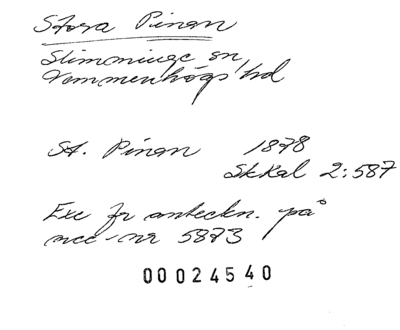 Stora Pinan
Slimminge sn,
Vemmenhögs hd
St. Pinan 1878
SkKal 2:587
Exc fr anteckn. på
acc-nr 5873
00024540